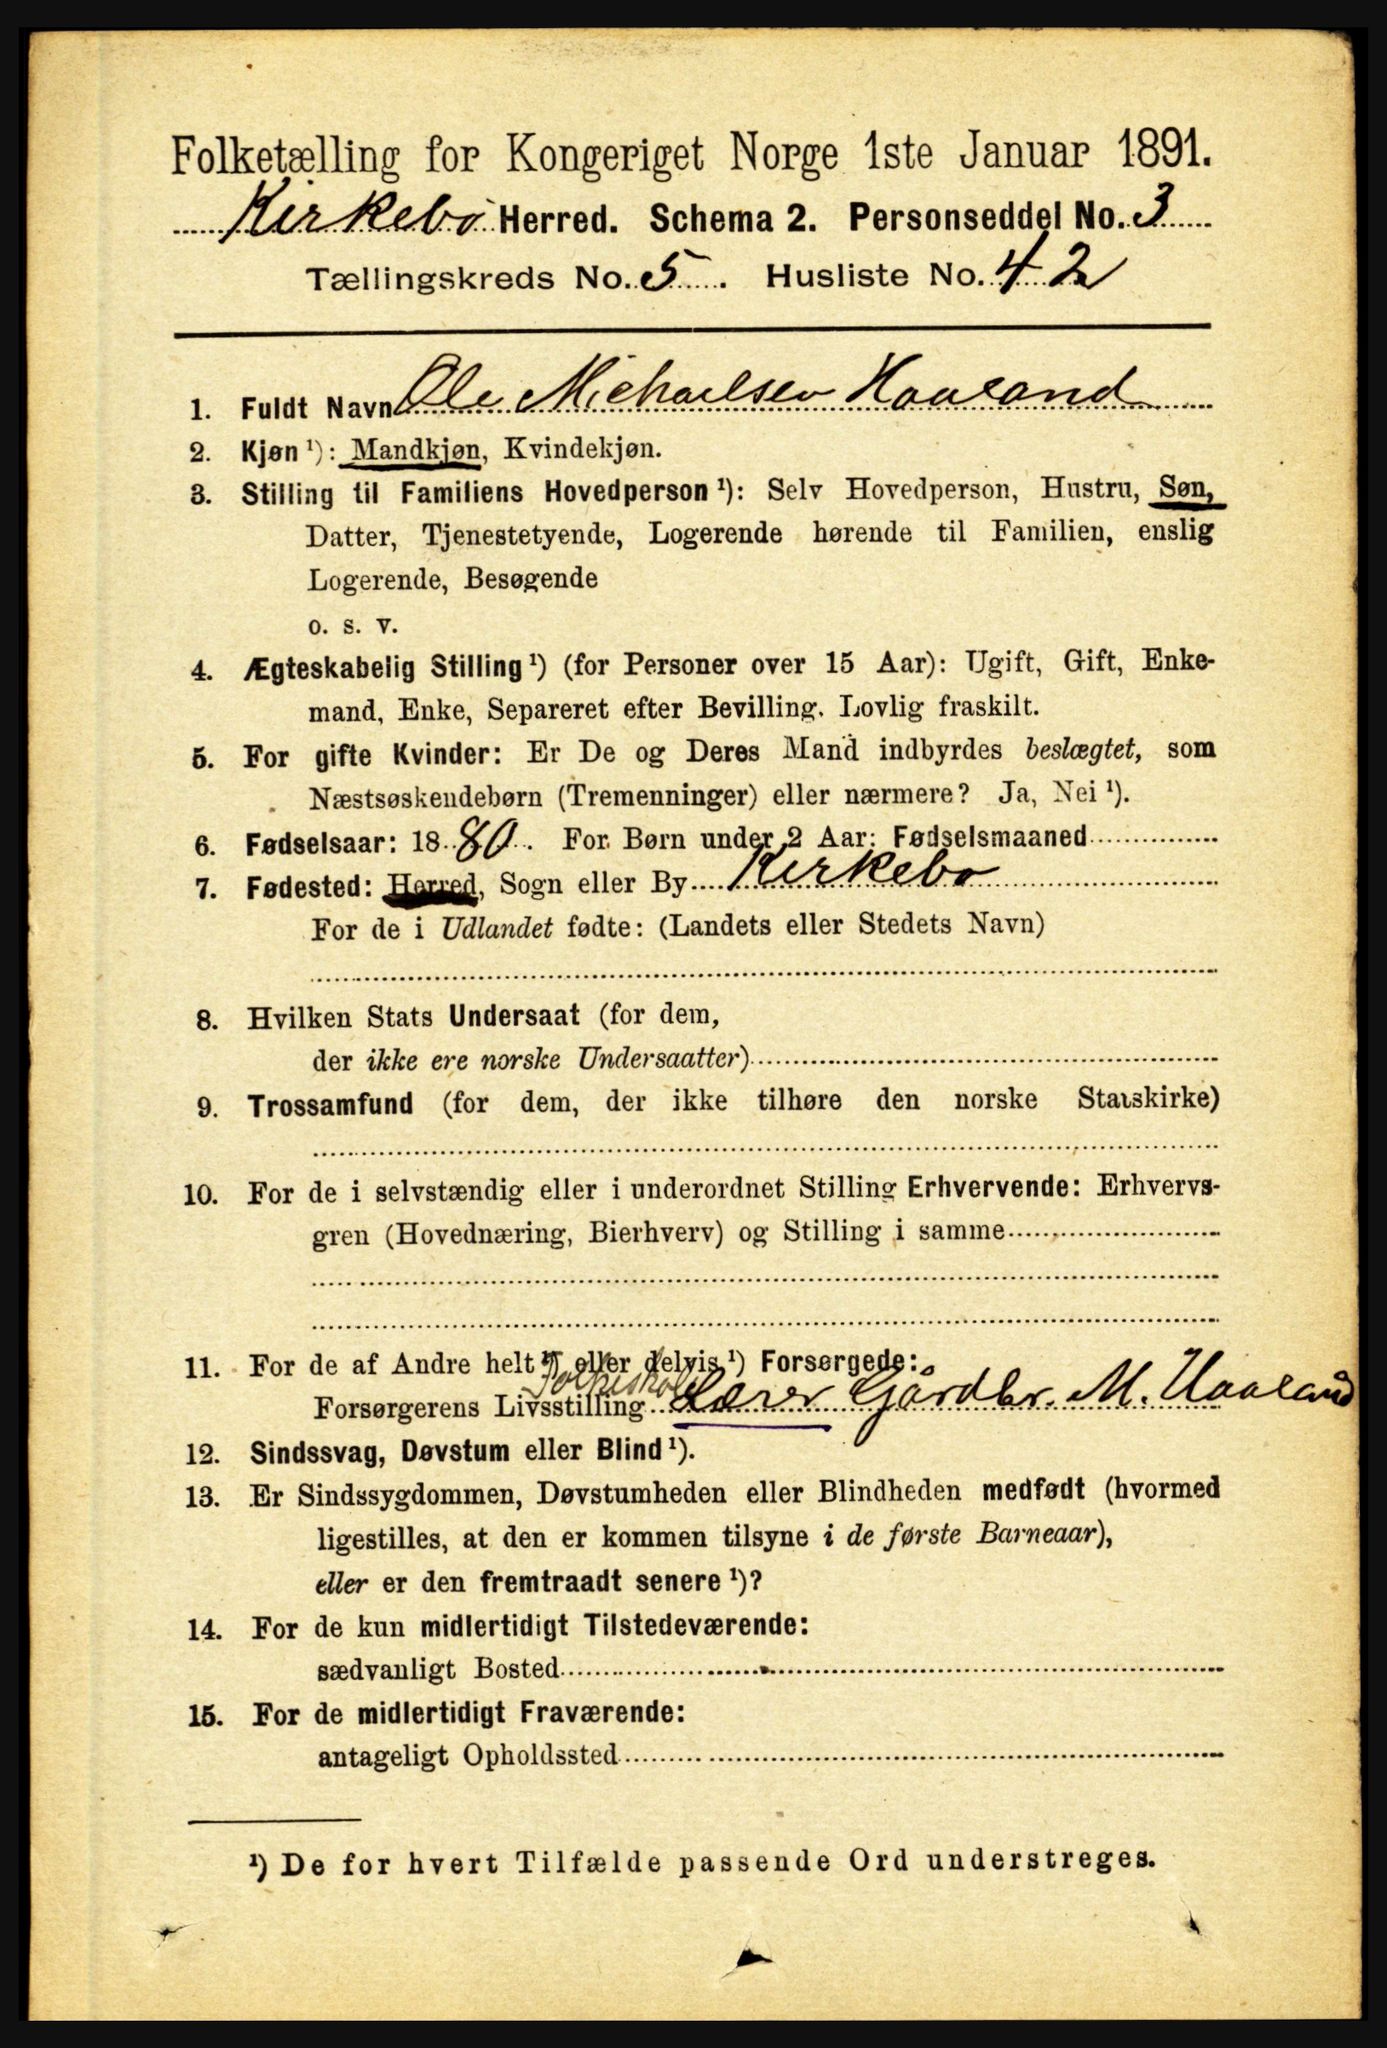 Folketælling for Kongeriget Norge 1ste Januar 1891.
Kirkebø Herred. Schema 2. Personseddel No. 3
Tællingskreds No. 5. Husliste No. 42
1. Fuldt Navn Ole Michaelsen Haaland
2. Kjøn ¹): Mandkjøn, Kvindekjøn.
3. Stilling til Familiens Hovedperson ¹): Selv Hovedperson, Hustru, Søn,
Datter, Tjenestetyende, Logerende hørende til Familien, enslig
Logerende, Besøgende
o. s. v.
4. Ægteskabelig Stilling ¹) (for Personer over 15 Aar): Ugift, Gift, Enke-
mand, Enke, Separeret efter Bevilling. Lovlig fraskilt.
5. For gifte Kvinder: Er De og Deres Mand indbyrdes beslægtet, som
Næstsøskendebørn (Tremenninger) eller nærmere? Ja, Nei ¹).
6. Fødselsaar: 1880. For Børn under 2 Aar: Fødselsmaaned
7. Fødested: Herred, Sogn eller By Kirkebø
For de i Udlandet fødte: (Landets eller Stedets Navn)
8. Hvilken Stats Undersaat (for dem,
der ikke ere norske Undersaatter)
9. Trossamfund (for dem, der ikke tilhøre den norske Statskirke)
10. For de i selvstændig eller i underordnet Stilling Erhvervende: Erhvervs-
gren (Hovednæring, Bierhverv) og Stilling i samme
11. For de af Andre helt ¹) eller delvis ¹) Forsørgede:
Folkeskol
Forsørgerens Livsstilling Lærer Gårdbr. M. Haaland
12. Sindssvag, Døvstum eller Blind ¹).
13. Er Sindssygdommen, Døvstumheden eller Blindheden medfødt (hvormed
ligestilles, at den er kommen tilsyne i de første Barneaar),
eller er den fremtraadt senere ¹)?
14. For de kun midlertidigt Tilstedeværende:
sædvanligt Bosted
15. For de midlertidigt Fraværende:
antageligt Opholdssted
¹) De for hvert Tilfælde passende Ord understreges.